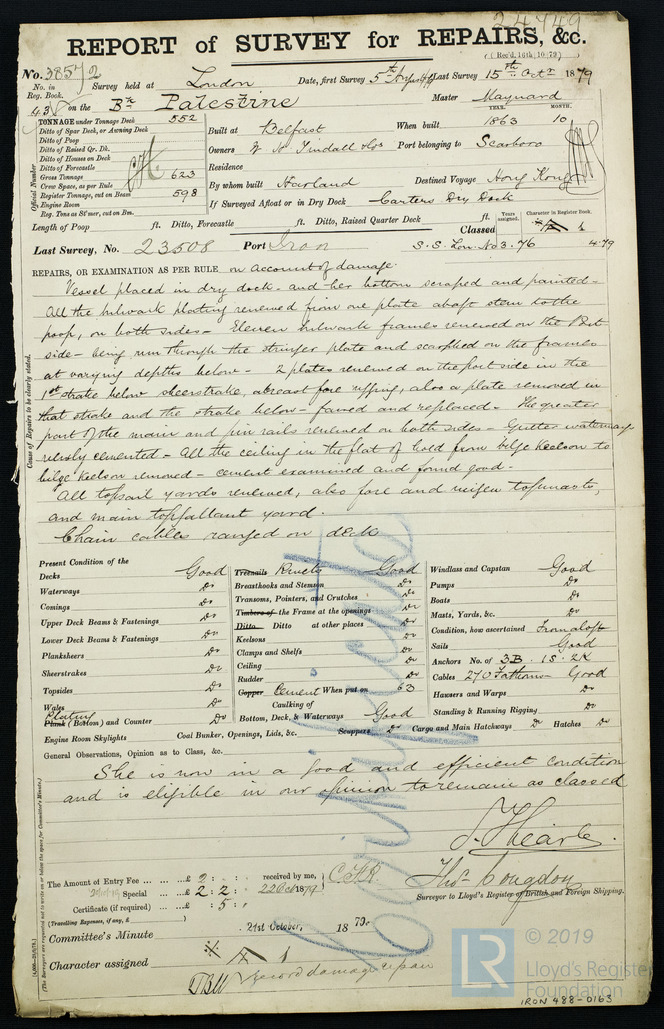 24749
REPORT of SURVEY for REPAIRS, &c.
(Rec'd. 16th 10.79)
No. 38572
No. in Reg. Book.
438
Survey held at London
Date, first Survey 5th Augst
Last Survey 15th Octr 1879
on the Bk Palestine
Master Maynard
TONNAGE under Tonnage Deck 552
Ditto of Spar Deck, or Awning Deck
Ditto of Poop
Ditto of Raised Qr. Dk.
Ditto of Houses on Deck
Ditto of Forecastle
Gross Tonnage 623
Crew Space, as per Rule
Register Tonnage, cut on Beam 598
Engine Room
Reg. Tons as St'mer, cut on Bm.
Official Number
Built at Belfast
When built YEAR. 1863 MONTH. 10
Owners W H Tindall & Co
Port belonging to Scarboro
Residence
By whom built Harland
Destined Voyage Hong Kong
If Surveyed Afloat or in Dry Dock Carters Dry Dock
Length of Poop ft. Ditto, Forecastle ft. Ditto, Raised Quarter Deck ft.
Classed
Years assigned.
Character in Register Book.
A 1
Last Survey, No. 23508 Port Iron
S.S. Lon. No 3. 76 4.79
REPAIRS, OR EXAMINATION AS PER RULE on account of damage
Vessel placed in dry dock - and her bottom scraped and painted -
All the bulwark plating renewed from one plate abaft stem to the
poop, on both sides - Eleven bulwark frames renewed on the Port
side - being run through the stringer plate and scarphed on the frames
at varying depths below - 2 plates renewed on the port side in the
1st strake below sheerstrake, abreast fore rigging, also a plate removed in
that strake and the strake below - faired and replaced - The greater
part of the main and pin rails renewed on both sides - Gutter waterway
newly cemented - All the ceiling in the flat of hold from bilge keelson to
bilge keelson removed - cement examined and found good -
All topsail yards renewed, also fore and mizen topmasts,
and main topgallant yard.
Chain cables ranged on deck
Cause of Repairs to be clearly stated.
Present Condition of the
Decks Good
Waterways Do
Comings Do
Upper Deck Beams & Fastenings Do
Lower Deck Beams & Fastenings Do
Planksheers Do
Sheerstrakes Do
Topsides Do
Wales Do
Plating
Plank (Bottom) and Counter Do
Engine Room Skylights
Treenails Rivets Good
Breasthooks and Stemson Do
Transoms, Pointers, and Crutches Do
Timbers of the Frame at the openings Do
Ditto Ditto at other places Do
Keelsons Do
Clamps and Shelfs Do
Ceiling Do
Rudder Do
Copper Cement When put on 63
Caulking of
Bottom, Deck, & Waterways Good
Coal Bunker, Openings, Lids, &c.
Scuppers Do
Windlass and Capstan Good
Pumps Do
Boats Do
Masts, Yards, &c. Do
Condition, how ascertained From aloft
Sails Good
Anchors No. of 3B. 1S. 2K
Cables 270 Fathoms Good
Hawsers and Warps Do
Standing & Running Rigging Do
Cargo and Main Hatchways Do Hatches Do
General Observations, Opinion as to Class, &c.
She is now in a good and efficient condition
and is eligible in our opinion to remain as classed
J. Hearle
Thos Congdon
Surveyor to Lloyd's Register of British and Foreign Shipping.
The Amount of Entry Fee ... £ 2 : :
received by me,
Special ... £ 2 : 2 :
22 Oct 1879
Certificate (if required) ... : 5 :
(Travelling Expenses, if any, £ )
Committee's Minute 21st October, 1879.
Character assigned A 1
Record damage repair
© 2019
LR
Lloyd's Register
Foundation
IRON 488-0163